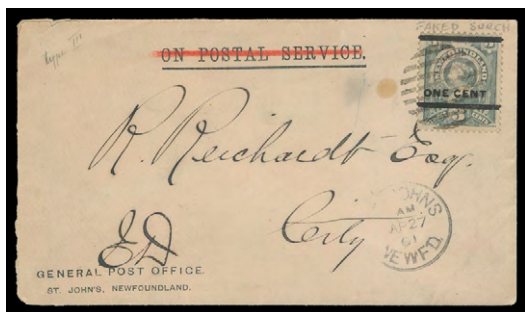 FAKED SURCH
type III
ON POSTAL SERVICE.
NEWFOUNDLAND
ONE CENT
R. Reichardt Esq.
City
ST. JOHN'S
AM
AP 27
01
NEWF'D.
ED
GENERAL POST OFFICE.
ST. JOHN'S, NEWFOUNDLAND.